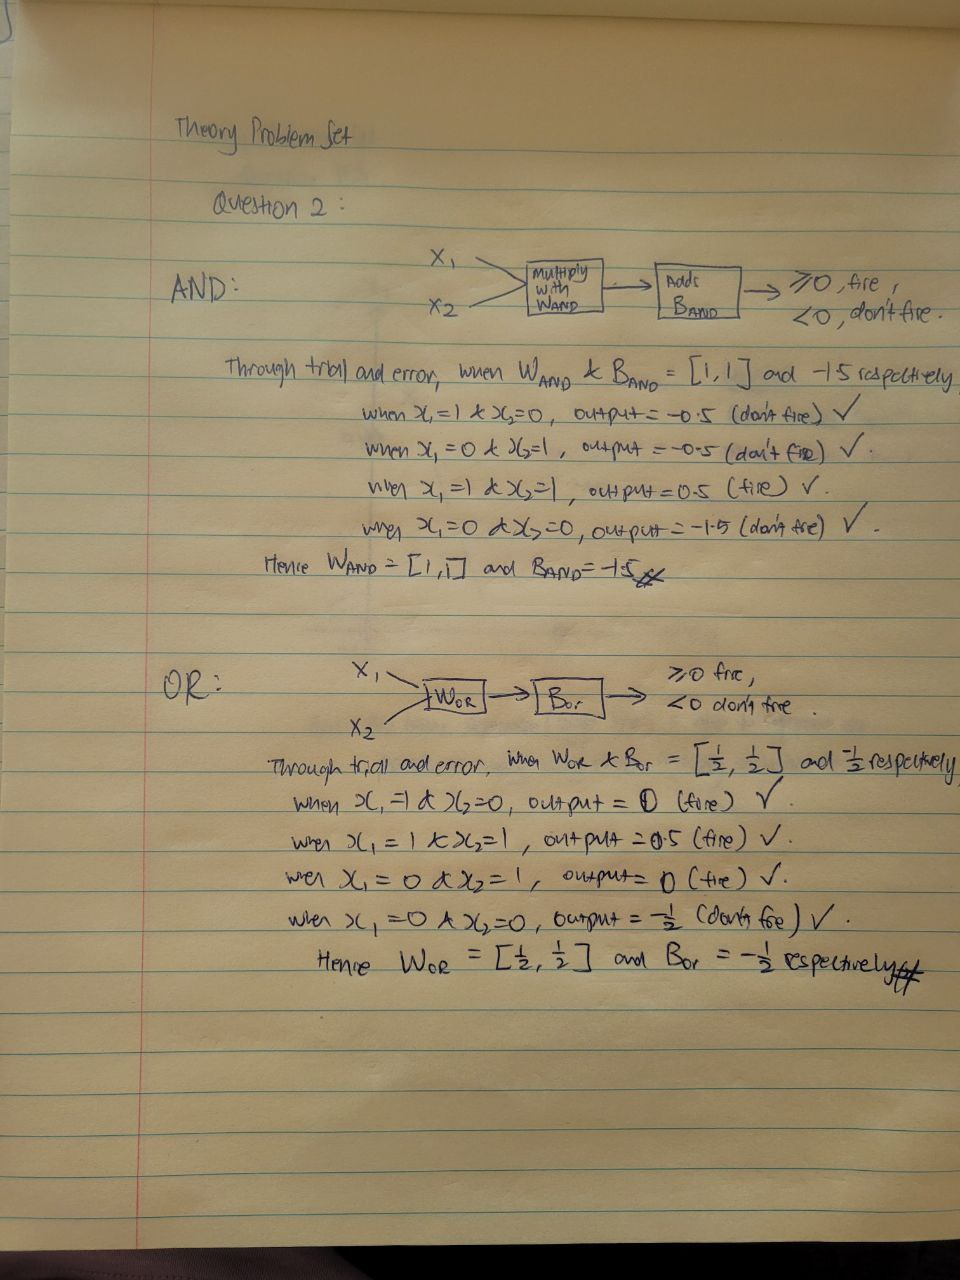 Theory Problem Set
Question 2 :
AND:
X1
X2
Multiply with WAND
Adds BAND
≥0, fire,
<0, don't fire.
Through trial and error, when WAND & BAND = [1,1] and -1.5 respectively
when x1=1 & x2=0, output = -0.5 (don't fire) ✓
when x1=0 & x2=1, output = -0.5 (don't fire) ✓.
when x1=1 & x2=1, output = 0.5 (fire) ✓.
when x1=0 & x2=0, output = -1.5 (don't fire) ✓.
Hence WAND = [1,1] and BAND = -1.5
OR:
X1
X2
WOR
Bor
≥0 fire,
<0 don't fire.
Through trial and error, when WOR & Bor = [1/2, 1/2] and -1/2 respectively
when x1=1 & x2=0, output = 0 (fire) ✓.
when x1=1 & x2=1, output = 0.5 (fire) ✓.
when x1=0 & x2=1, output = 0 (fire) ✓.
when x1=0 & x2=0, output = -1/2 (don't fire) ✓.
Hence WOR = [1/2, 1/2] and Bor = -1/2 respectively